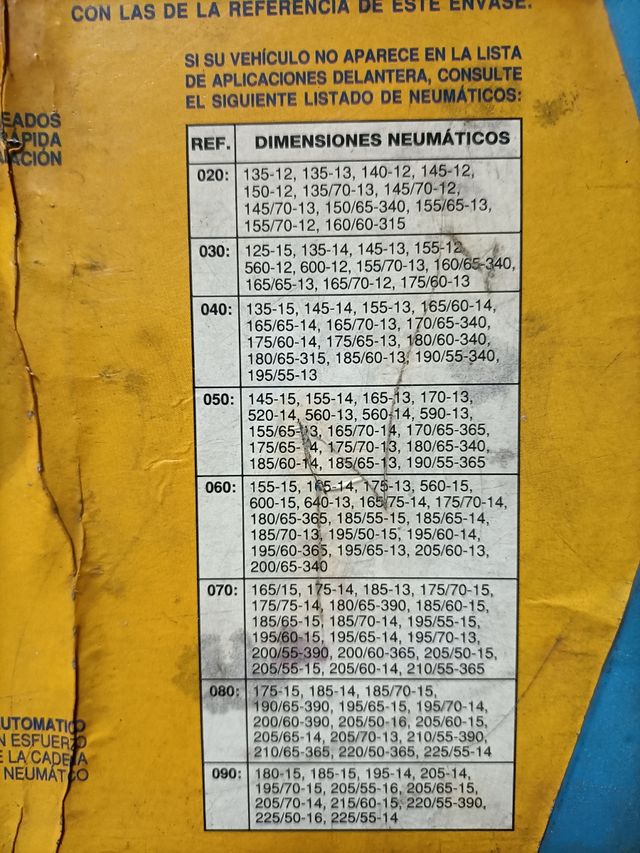 CON LAS DE LA REFERENCIA DE ESTE ENVASE.
SI SU VEHÍCULO NO APARECE EN LA LISTA
DE APLICACIONES DELANTERA, CONSULTE
EL SIGUIENTE LISTADO DE NEUMÁTICOS:
EADOS
RÁPIDA
ACIÓN
REF. DIMENSIONES NEUMÁTICOS
020: 135-12, 135-13, 140-12, 145-12,
150-12, 135/70-13, 145/70-12,
145/70-13, 150/65-340, 155/65-13,
155/70-12, 160/60-315
030: 125-15, 135-14, 145-13, 155-12
560-12, 600-12, 155/70-13, 160/65-340,
165/65-13, 165/70-12, 175/60-13
040: 135-15, 145-14, 155-13, 165/60-14,
165/65-14, 165/70-13, 170/65-340,
175/60-14, 175/65-13, 180/60-340,
180/65-315, 185/60-13, 190/55-340,
195/55-13
050: 145-15, 155-14, 165-13, 170-13,
520-14, 560-13, 560-14, 590-13,
155/65-13, 165/70-14, 170/65-365,
175/65-14, 175/70-13, 180/65-340,
185/60-14, 185/65-13, 190/55-365
060: 155-15, 165-14, 175-13, 560-15,
600-15, 640-13, 165/75-14, 175/70-14,
180/65-365, 185/55-15, 185/65-14,
185/70-13, 195/50-15, 195/60-14,
195/60-365, 195/65-13, 205/60-13,
200/65-340
070: 165/15, 175-14, 185-13, 175/70-15,
175/75-14, 180/65-390, 185/60-15,
185/65-15, 185/70-14, 195/55-15,
195/60-15, 195/65-14, 195/70-13,
200/55-390, 200/60-365, 205/50-15,
205/55-15, 205/60-14, 210/55-365
080: 175-15, 185-14, 185/70-15,
190/65-390, 195/65-15, 195/70-14,
200/60-390, 205/50-16, 205/60-15,
205/65-14, 205/70-13, 210/55-390,
210/65-365, 220/50-365, 225/55-14
090: 180-15, 185-15, 195-14, 205-14,
195/70-15, 205/55-16, 205/65-15,
205/70-14, 215/60-15, 220/55-390,
225/50-16, 225/55-14
AUTOMATICO
N ESFUERZO
E LA CADENA
NEUMÁTCO